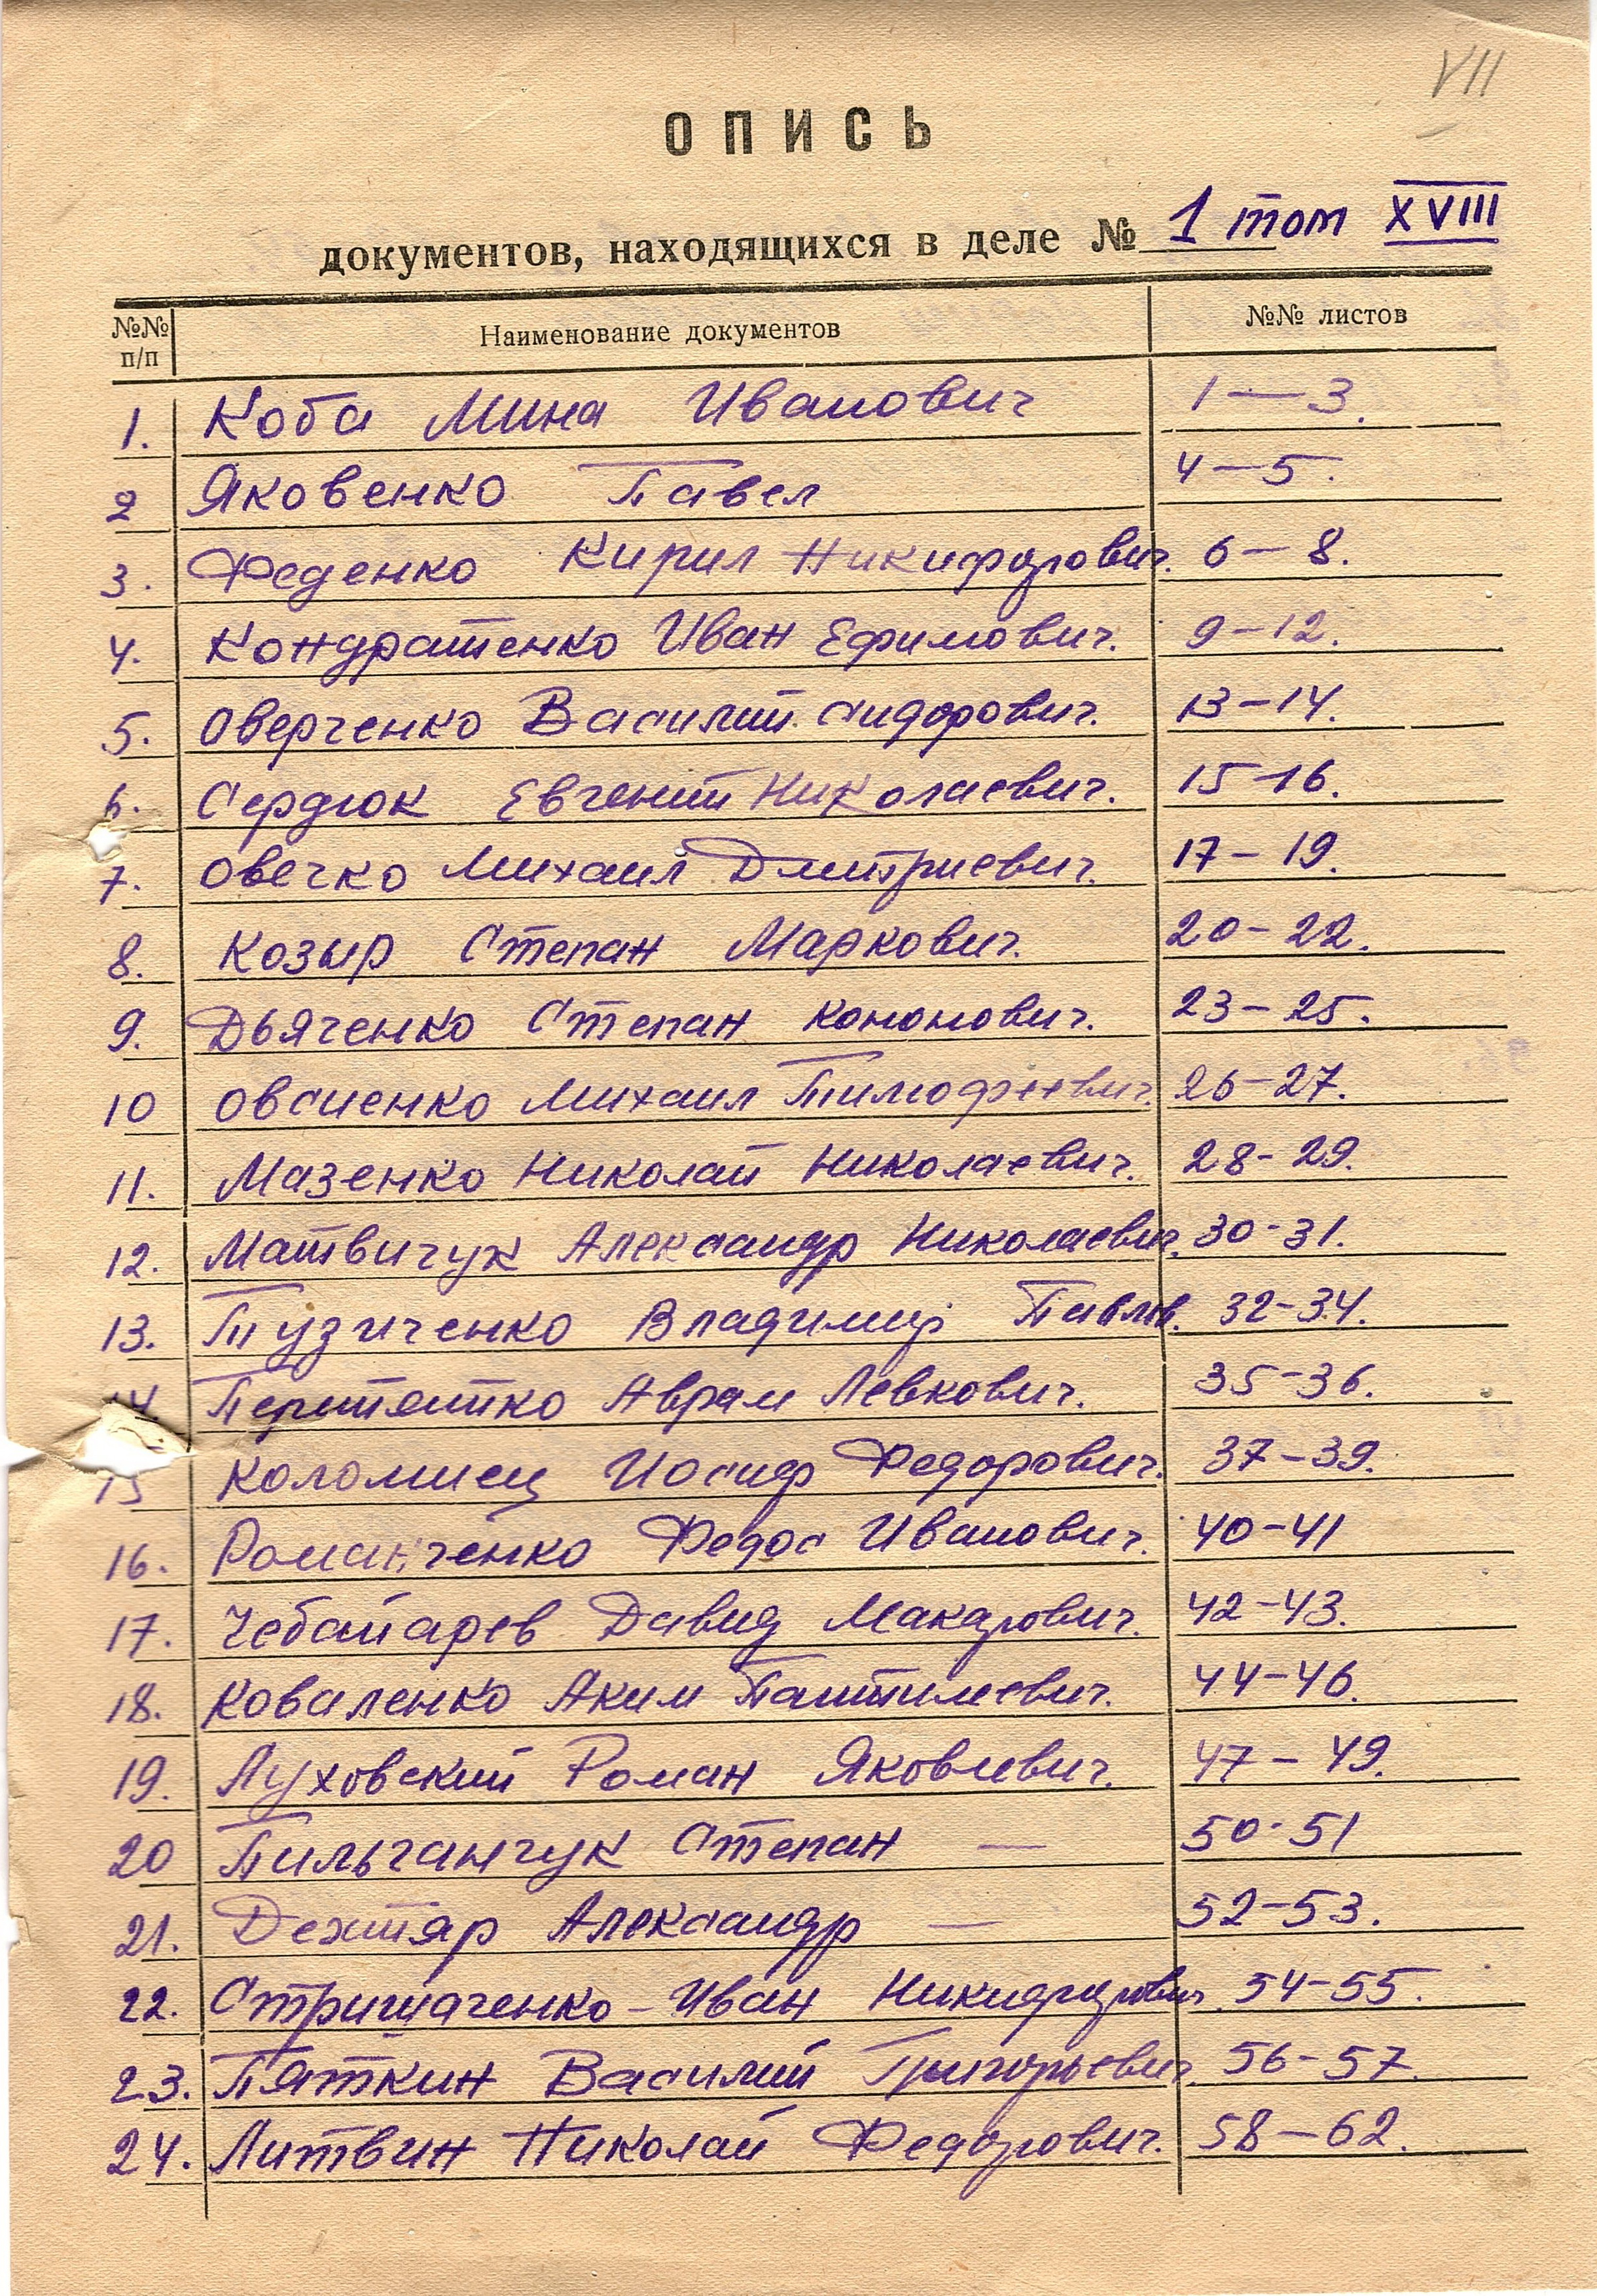 VII
ОПИСЬ
документов, находящихся в деле № 1 том XVIII
№№ п/п Наименование документов №№ листов
1. Коба Мина Иванович 1—3.
2 Яковенко Павел 4—5.
3. Феденко Кирил Никифорович. 6—8.
4. Кондратенко Иван Ефимович. 9—12.
5. Оверченко Василий Сидорович. 13—14.
6. Сердюк Евгений Николаевич. 15-16.
7. Овечко Михаил Дмитриевич. 17—19.
8. Козыр Степан Маркович. 20-22.
9. Дьяченко Степан Кононович. 23—25.
10 Овсиенко Михаил Тимофеевич. 26-27.
11. Мазенко Николай Николаевич. 28-29.
12. Матвичук Александр Николаевич. 30-31.
13. Пузиченко Владимир Павлов. 32-34.
14. Аврам Левкович. 35-36.
15 Коломиец Иосиф Федорович. 37—39.
16. Романченко Федос Иванович. 40-41
17. Давид Макарович. 42-43.
18. Коваленко Аким 44-46.
19. Луховский Роман Яковлевич. 47—49.
20 Пильганчук Степан — 50-51
21. Дехтяр Александр — 52-53.
22. Иван Никифорович. 54-55.
23. Пяткин Василий Григорьевич. 56-57.
24. Литвин Николай Федорович. 58—62.